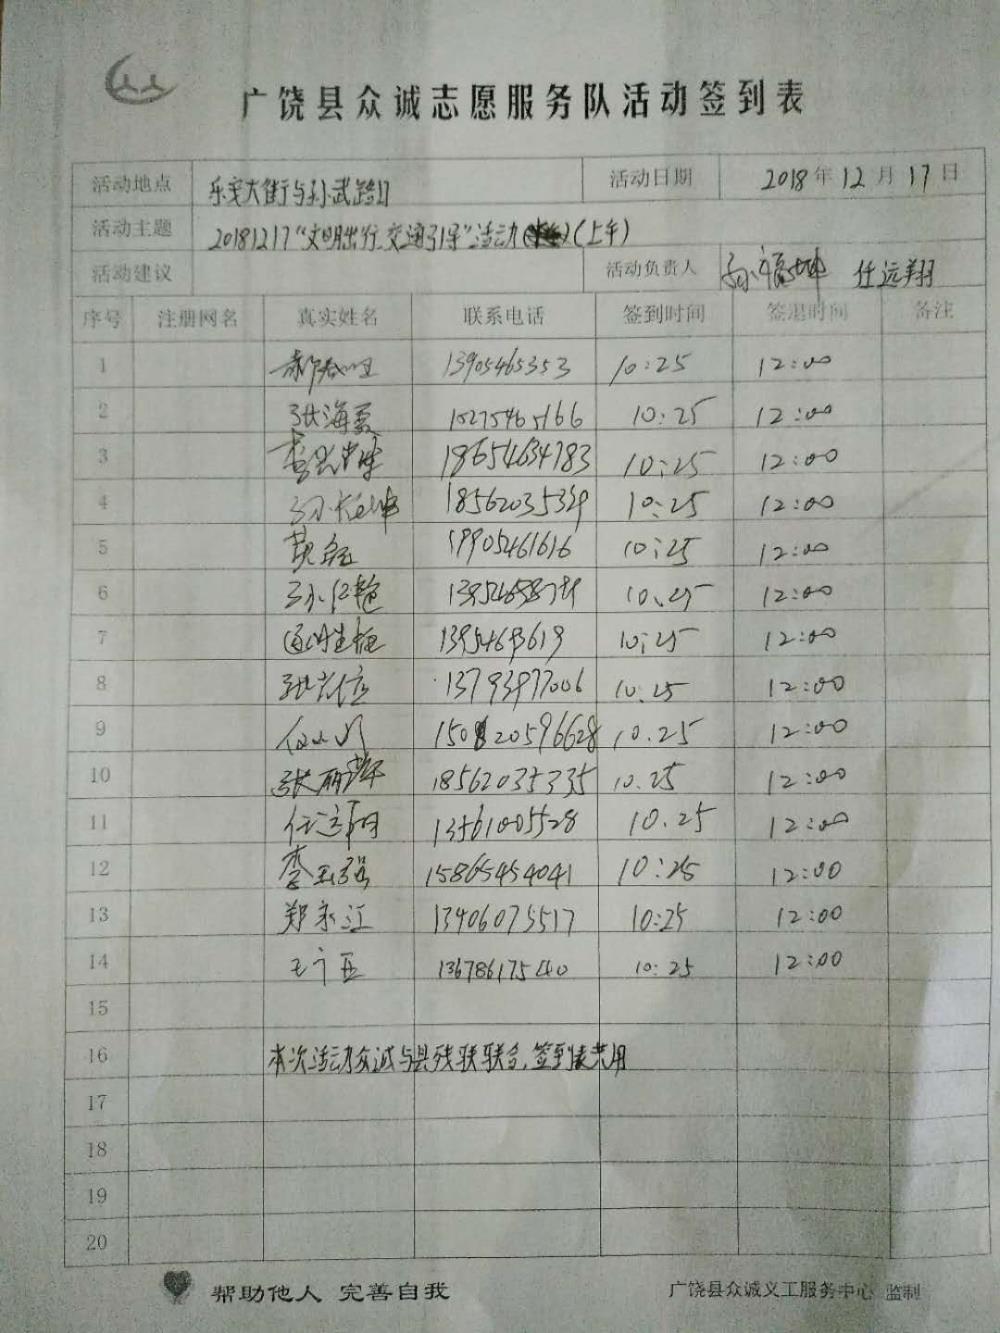 广饶县众诚志愿服务队活动签到表
活动地点 乐安大街与孙武路口 活动日期 2018年12月17日
活动主题 20181217“文明出行 交通引导”活动(上午)
活动建议 活动负责人 孙福坤 任远翔
序号 注册网名 真实姓名 联系电话 签到时间 签退时间 备注
1 13905465353 10:25 12:00
2 张海燕 15275465166 10:25 12:00
3 18654634783 10:25 12:00
4 10:25 12:00
5 19905461616 10:25 12:00
6 10:25 12:00
7 10:25 12:00
8 13793977006 10:25 12:00
9 10.25 12:00
10 张丽萍 18562035335 10.25 12:00
11 任远翔 13561005528 10.25 12:00
12 李玉强 15865454041 10:25 12:00
13 郑永江 13406075517 10:25 12:00
14 13678617540 10:25 12:00
15
16 本次活动众诚与县残联联合,签到表共用
17
18
19
20
帮助他人 完善自我 广饶县众诚义工服务中心 监制